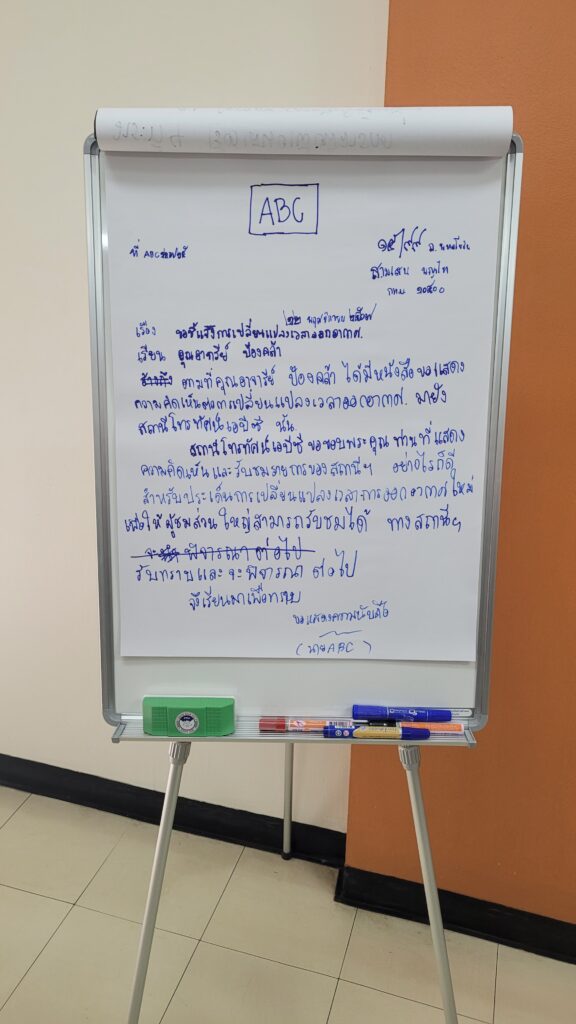 ABC
ที่ ABC
๑๕/๙๙ ถ. พหลโยธิน
สามเสน พญาไท
กทม ๑๐๔๐๐
๒๒ พฤศจิกายน
เรื่อง ขอชี้แจงการเปลี่ยนแปลงเวลาออกอากาศ.
เรียน คุณอาจารีย์ ป้องคล้า
อ้างถึง ตามที่คุณอาจารีย์ ป้องคล้า ได้มีหนังสือขอแสดง
ความคิดเห็นต่อการเปลี่ยนแปลงเวลาออกอากาศ. มายัง
สถานีโทรทัศน์เอบีซี นั้น
สถานีโทรทัศน์เอบีซี ขอขอบพระคุณ ท่านที่แสดง
ความคิดเห็นและรับชมรายการของสถานีฯ อย่างไรก็ดี
สำหรับประเด็นการเปลี่ยนแปลงเวลาการออกอากาศใหม่
เพื่อให้ ผู้ชมส่วนใหญ่สามารถรับชมได้ ทางสถานีฯ
พิจารณาต่อไป
รับทราบและจะพิจารณา ต่อไป
จึงเรียนมาเพื่อทราบ
ขอแสดงความนับถือ
(นายABC)